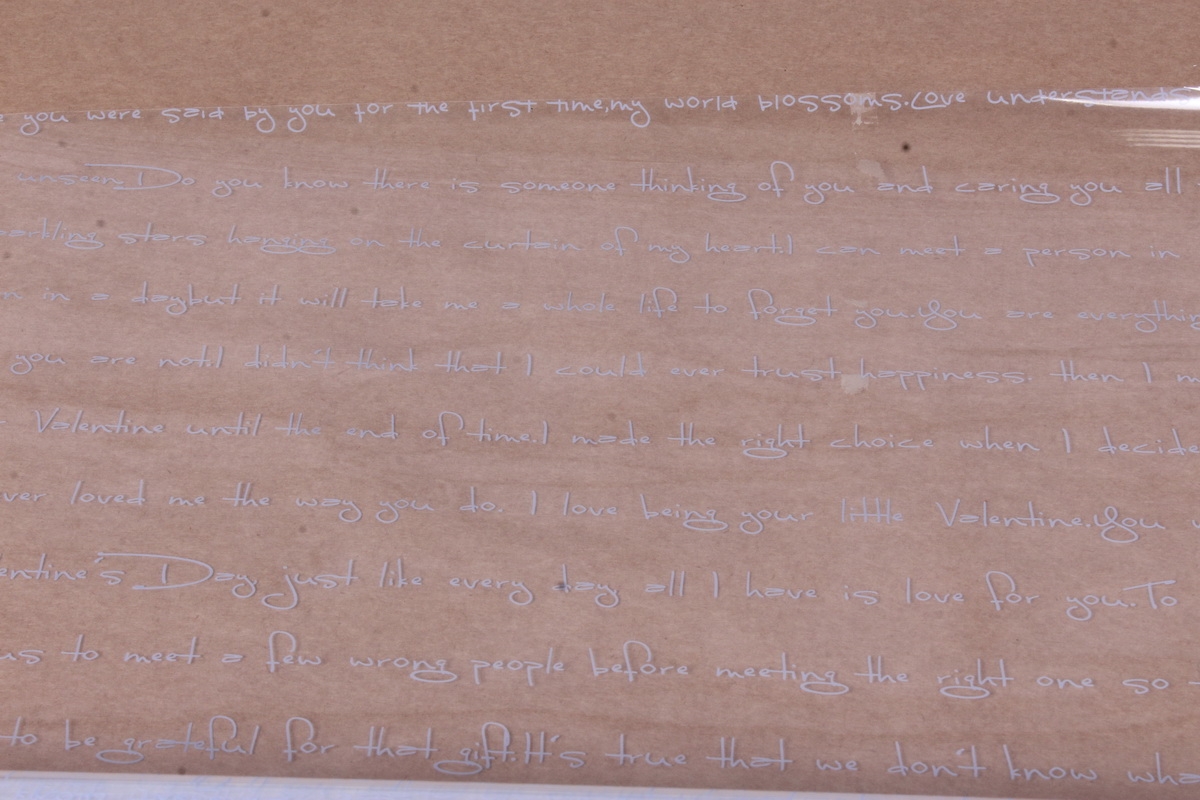 you were said by you for the first time,my world blossoms.Love understands
unseen.Do you know there is someone thinking of you and caring you all
stars hanging on the curtain of my heart.I can meet a person in
in a daybut it will take me a whole life to forget you.You are everything
you are not.I didn't think that I could ever trust happiness. then I
Valentine until the end of time.I made the right choice when I decide
ver loved me the way you do. I love being your little Valentine.You
entine's Day, just like every day all I have is love for you.To
us to meet a few wrong people before meeting the right one so
to be grateful for that gift.It's true that we don't know wha